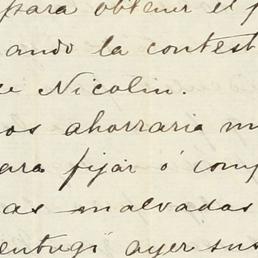 para obtener el p
ando la contest
e Nicolin.
os ahorraria m
ara fijar ó comp
as malvadas
ayer sus